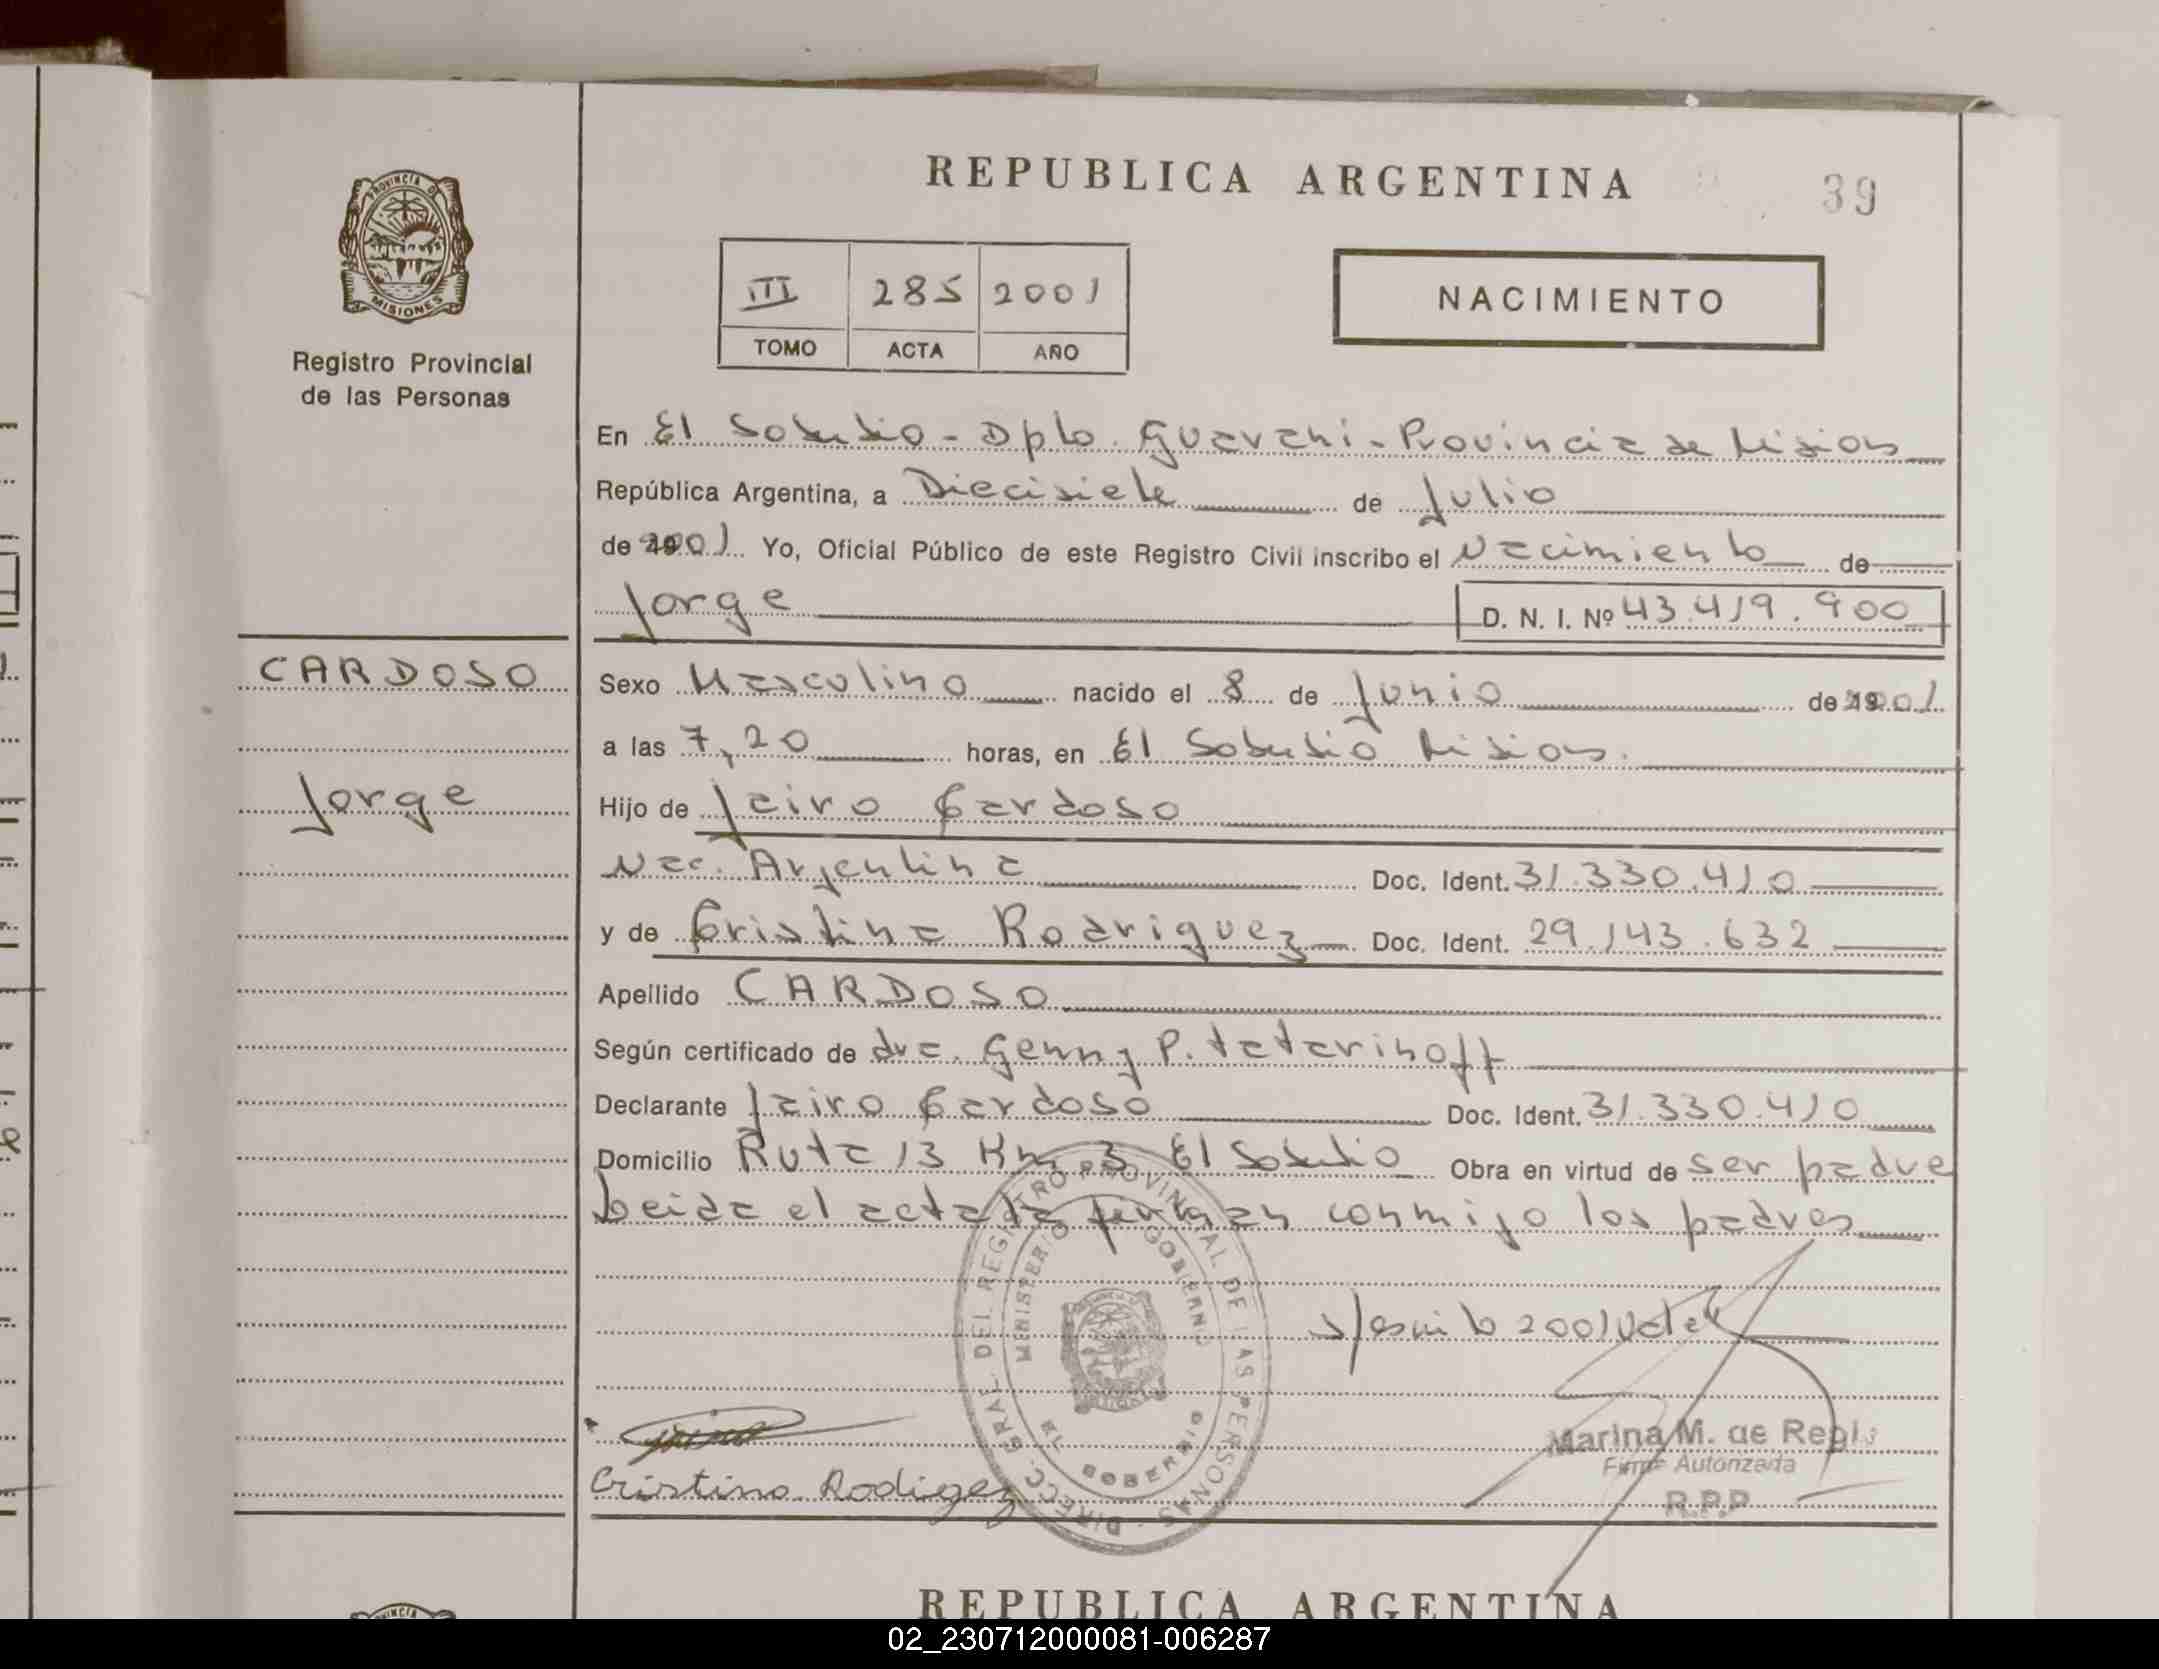 REPUBLICA ARGENTINA
39
PROVINCIA DE
MISIONES
Registro Provincial
de las Personas
III 285 2001
TOMO ACTA AÑO
NACIMIENTO
En El Soberbio - Dpto. Guarani - Provincia de Misiones
República Argentina, a Diecisiete de Julio
de 2001 Yo, Oficial Público de este Registro Civil inscribo el Nacimiento de
Jorge D. N. I. Nº 43.419.900
CARDOSO
Jorge
Sexo Masculino nacido el 8 de Junio de 2001
a las 7,20 horas, en El Soberbio Misiones.
Hijo de Jairo Cardoso
Nac. Argentina Doc. Ident. 31.330.410
y de Cristina Rodriguez Doc. Ident. 29.143.632
Apellido CARDOSO
Según certificado de dra. Genny P. Tatarinoff
Declarante Jairo Cardoso Doc. Ident. 31.330.410
Domicilio Ruta 13 Km 3 El Soberbio Obra en virtud de ser padre
Leida el acta la firman conmigo los padres
2001 Vale
DIRECC. GRAL. DEL REGISTRO PROVINCIAL DE LAS PERSONAS
MINISTERIO GOBIERNO
EL SOBERBIO
Cristina Rodigez
Marina M. de
Firma Autorizada
R.P.P.
REPUBLICA ARGENTINA
02_230712000081-006287